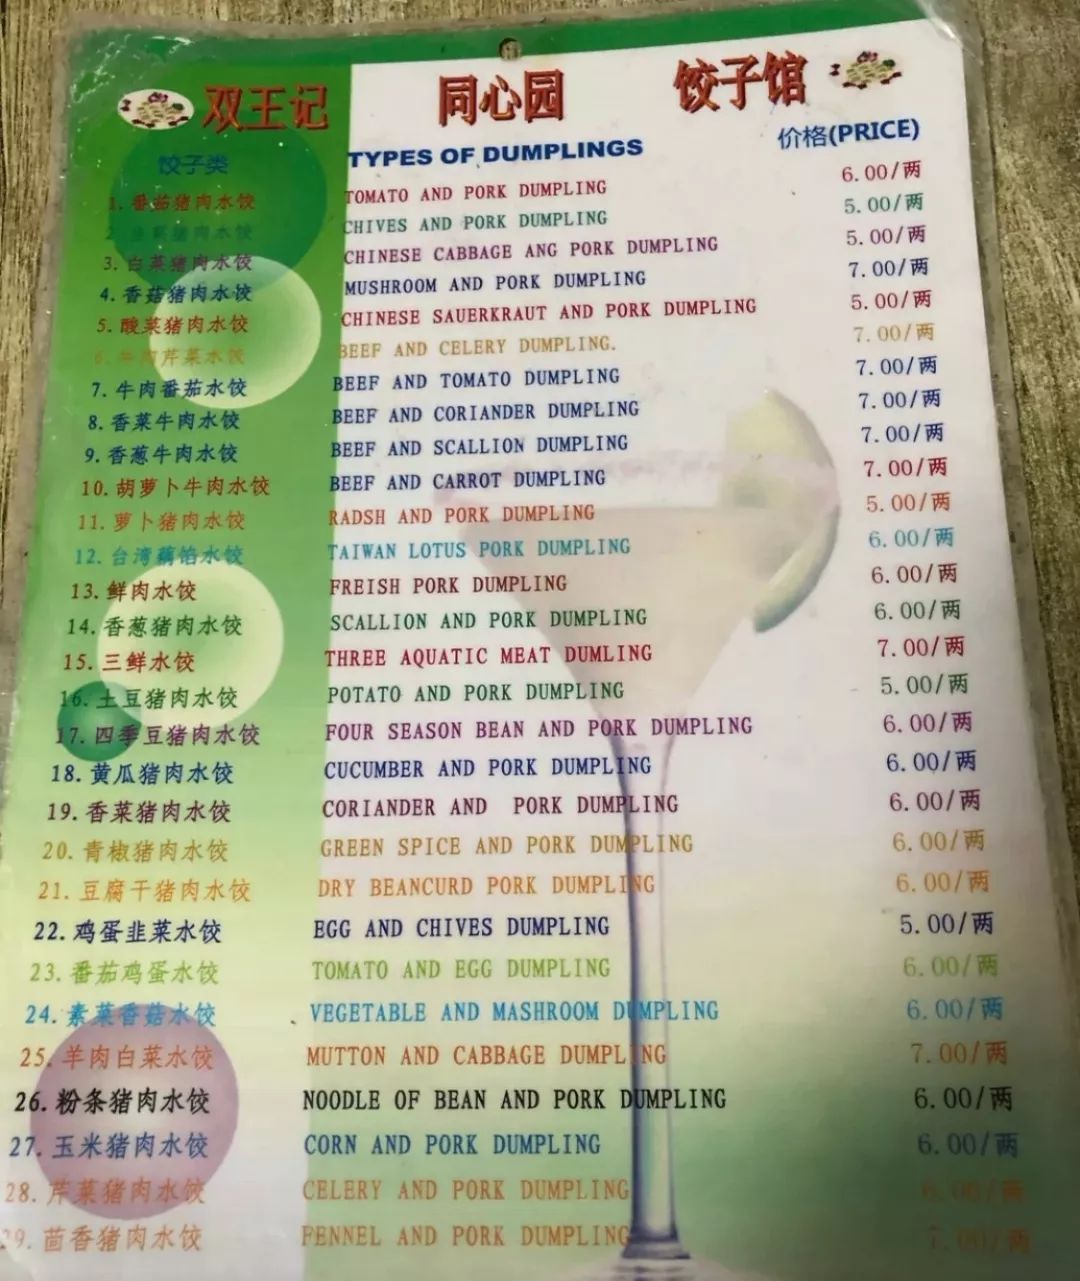 双王记 同心园 饺子馆
饺子类 TYPES OF DUMPLINGS 价格(PRICE)
1. 番茄猪肉水饺 TOMATO AND PORK DUMPLING 6.00/两
2. 韭菜猪肉水饺 CHIVES AND PORK DUMPLING 5.00/两
3. 白菜猪肉水饺 CHINESE CABBAGE ANG PORK DUMPLING 5.00/两
4. 香菇猪肉水饺 MUSHROOM AND PORK DUMPLING 7.00/两
5. 酸菜猪肉水饺 CHINESE SAUERKRAUT AND PORK DUMPLING 5.00/两
6. 牛肉芹菜水饺 BEEF AND CELERY DUMPLING. 7.00/两
7. 牛肉番茄水饺 BEEF AND TOMATO DUMPLING 7.00/两
8. 香菜牛肉水饺 BEEF AND CORIANDER DUMPLING 7.00/两
9. 香葱牛肉水饺 BEEF AND SCALLION DUMPLING 7.00/两
10. 胡萝卜牛肉水饺 BEEF AND CARROT DUMPLING 7.00/两
11. 萝卜猪肉水饺 RADSH AND PORK DUMPLING 5.00/两
12. 台湾藕馅水饺 TAIWAN LOTUS PORK DUMPLING 6.00/两
13. 鲜肉水饺 FREISH PORK DUMPLING 6.00/两
14. 香葱猪肉水饺 SCALLION AND PORK DUMPLING 6.00/两
15. 三鲜水饺 THREE AQUATIC MEAT DUMLING 7.00/两
16. 土豆猪肉水饺 POTATO AND PORK DUMPLING 5.00/两
17. 四季豆猪肉水饺 FOUR SEASON BEAN AND PORK DUMPLING 6.00/两
18. 黄瓜猪肉水饺 CUCUMBER AND PORK DUMPLING 6.00/两
19. 香菜猪肉水饺 CORIANDER AND PORK DUMPLING 6.00/两
20. 青椒猪肉水饺 GREEN SPICE AND PORK DUMPLING 6.00/两
21. 豆腐干猪肉水饺 DRY BEANCURD PORK DUMPLING 6.00/两
22. 鸡蛋韭菜水饺 EGG AND CHIVES DUMPLING 5.00/两
23. 番茄鸡蛋水饺 TOMATO AND EGG DUMPLING 6.00/两
24. 素菜香菇水饺 VEGETABLE AND MASHROOM DUMPLING 6.00/两
25. 羊肉白菜水饺 MUTTON AND CABBAGE DUMPLING 7.00/两
26. 粉条猪肉水饺 NOODLE OF BEAN AND PORK DUMPLING 6.00/两
27. 玉米猪肉水饺 CORN AND PORK DUMPLING 6.00/两
28. 芹菜猪肉水饺 CELERY AND PORK DUMPLING 6.00/两
29. 茴香猪肉水饺 FENNEL AND PORK DUMPLING 7.00/两